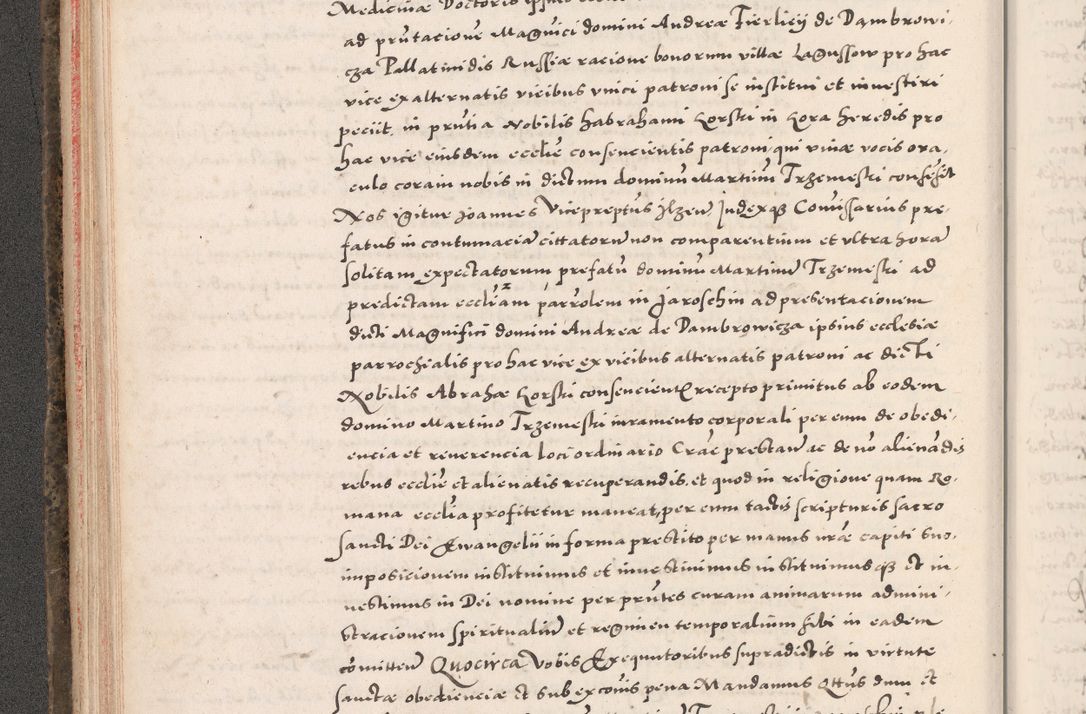 Medicinæ Doctoris ipsius
ad prutacione Magnici domini Andreæ Fierlieÿ de Dambrowi,
cza Pallatinidis Russiæ racione bonorum villæ Lagussow pro hac
vice ex alternatis vicibus vnici patroni se institui et investiri
peciit. in prutia Nobilis Habrahami Gorski in Gora heredis pro
hac vice eiusdem eccliæ consencientis patroni, qui vinæ vocis ora,
culo coram nobis in dictum dominu Martinu Trzemeski consesit
Nos igitur Joannes Vicepreptus Ilzen, Judexq Comissarius pre,
fatus in contumacia cittatoru non comparentium et vltra hora
solitam expectatorum prefatu dominu Martinu Trzemeski ad
predictam eccliam parrolem in Jaroschin ad presentacionem
dicti Magnifici domini Andreæ de Dambrowicza ipsius ecclesiæ
parrochialis pro hac vice ex vicibus alternatis patroni ac dicti
Nobilis Abrahæ Gorski consencient recepto primitus ab eodem
domino Martino Trzemeski iuramento corporali per eum de obedi,
encia et reverencia loci ordinario Cræ prestan ac de no alienadis
rebus eccliæ et alienatis recuperandis, et quod in religione quam Ro,
mana ecclia profitetur maneat, per eum tactis scripturis sacro
sancti Dei Ewangelii in forma prestito per manus nræ capiti suo,
imposicionem instituimus et investivimus instituimusq et in,
vestimus in Dei nomine per prutes curam animarum admini,
stracionem spiritualiu et regimen temporalium sibi in eadem
comitten Quocirca Vobis Exequutoribus supradictis in virtute
sanctæ obedienciæ et sub excois pena Mandamus Qttus dnm et